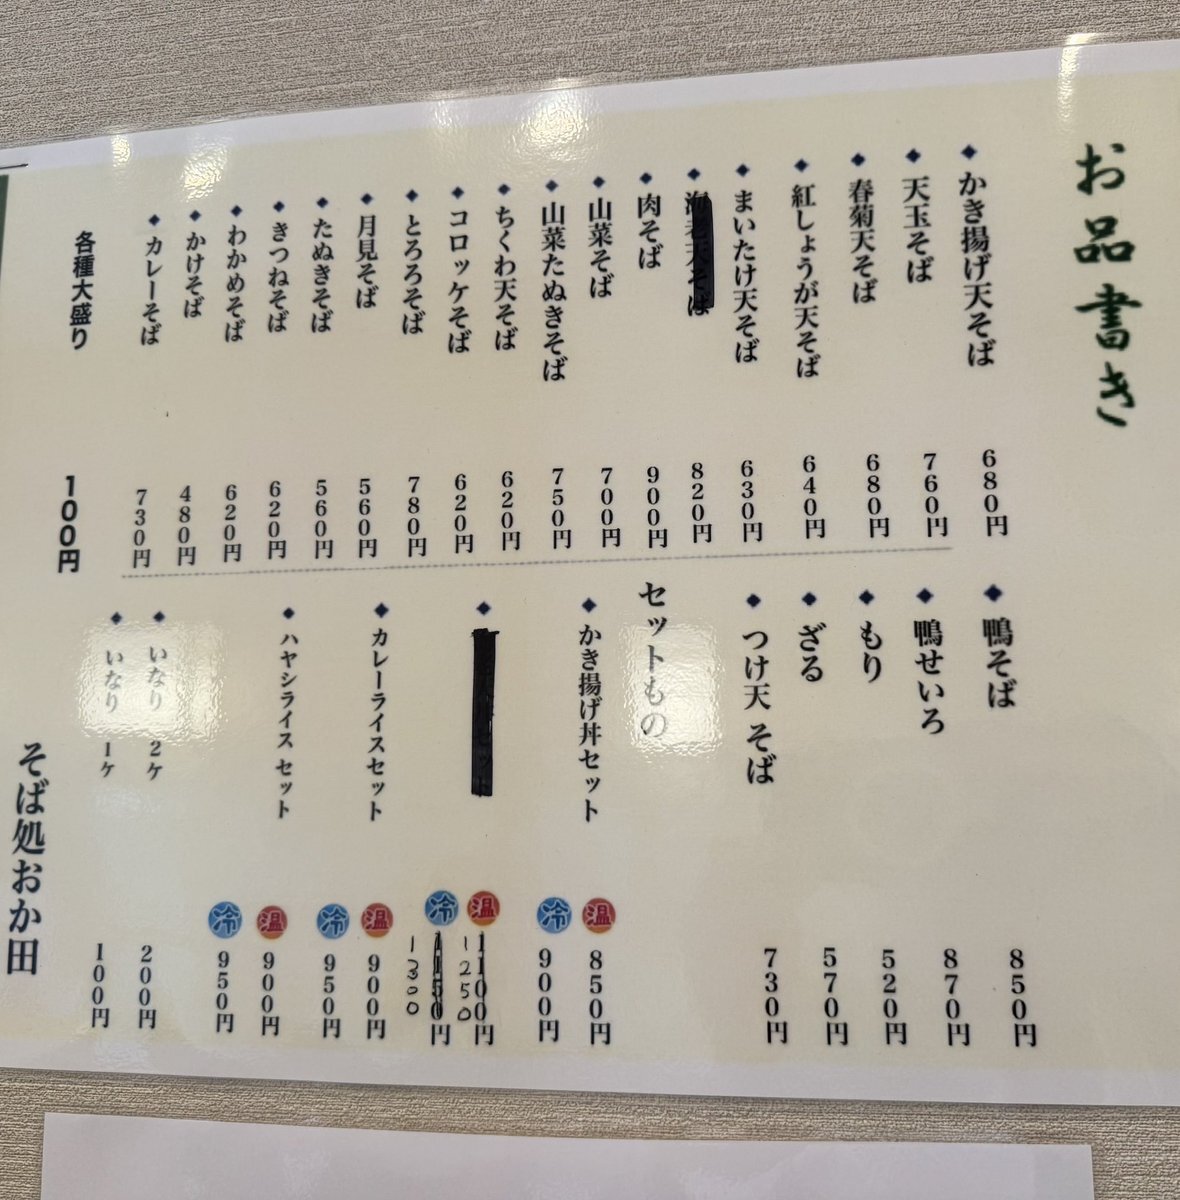 お品書き
◆かき揚げ天そば 680円
◆天玉そば 760円
◆春菊天そば 680円
◆紅しょうが天そば 640円
◆まいたけ天そば 630円
◆海老天そば 820円
◆肉そば 900円
◆山菜そば 700円
◆山菜たぬきそば 750円
◆ちくわ天そば 620円
◆コロッケそば 620円
◆とろろそば 780円
◆月見そば 560円
◆たぬきそば 560円
◆きつねそば 620円
◆わかめそば 620円
◆かけそば 480円
◆カレーそば 730円
各種大盛り 100円
◆鴨そば 850円
◆鴨せいろ 870円
◆もり 520円
◆ざる 570円
◆つけ天 そば 730円
セットもの
◆かき揚げ丼セット 温 850円
冷 900円
◆ 温 1100円
1250
冷 1150円
1300
◆カレーライスセット 温 900円
冷 950円
◆ハヤシライス セット 温 900円
冷 950円
◆いなり 2ケ 200円
◆いなり 1ケ 100円
そば処おか田